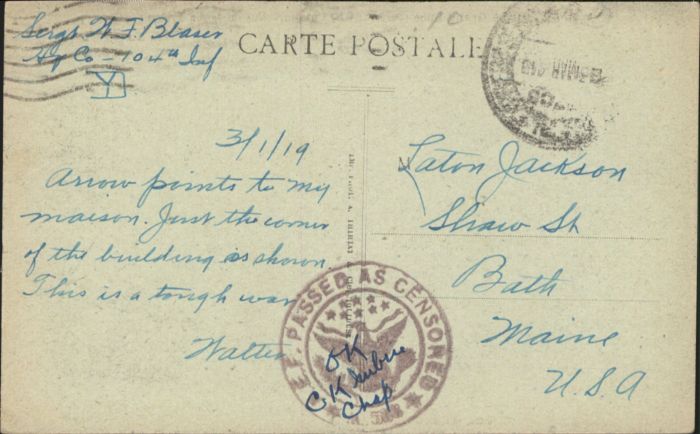 Sergt W. F. Blaser
Hq Co - 104th Inf
YD
CARTE POSTALE
3/1/19
Arrow points to my
maison. Just the corner
of the building is shown.
This is a tough war
Walter
Eaton Jackson
Shaw St
Bath
Maine
U.S.A
A.E.F. PASSED AS CENSORED
OK
Chap